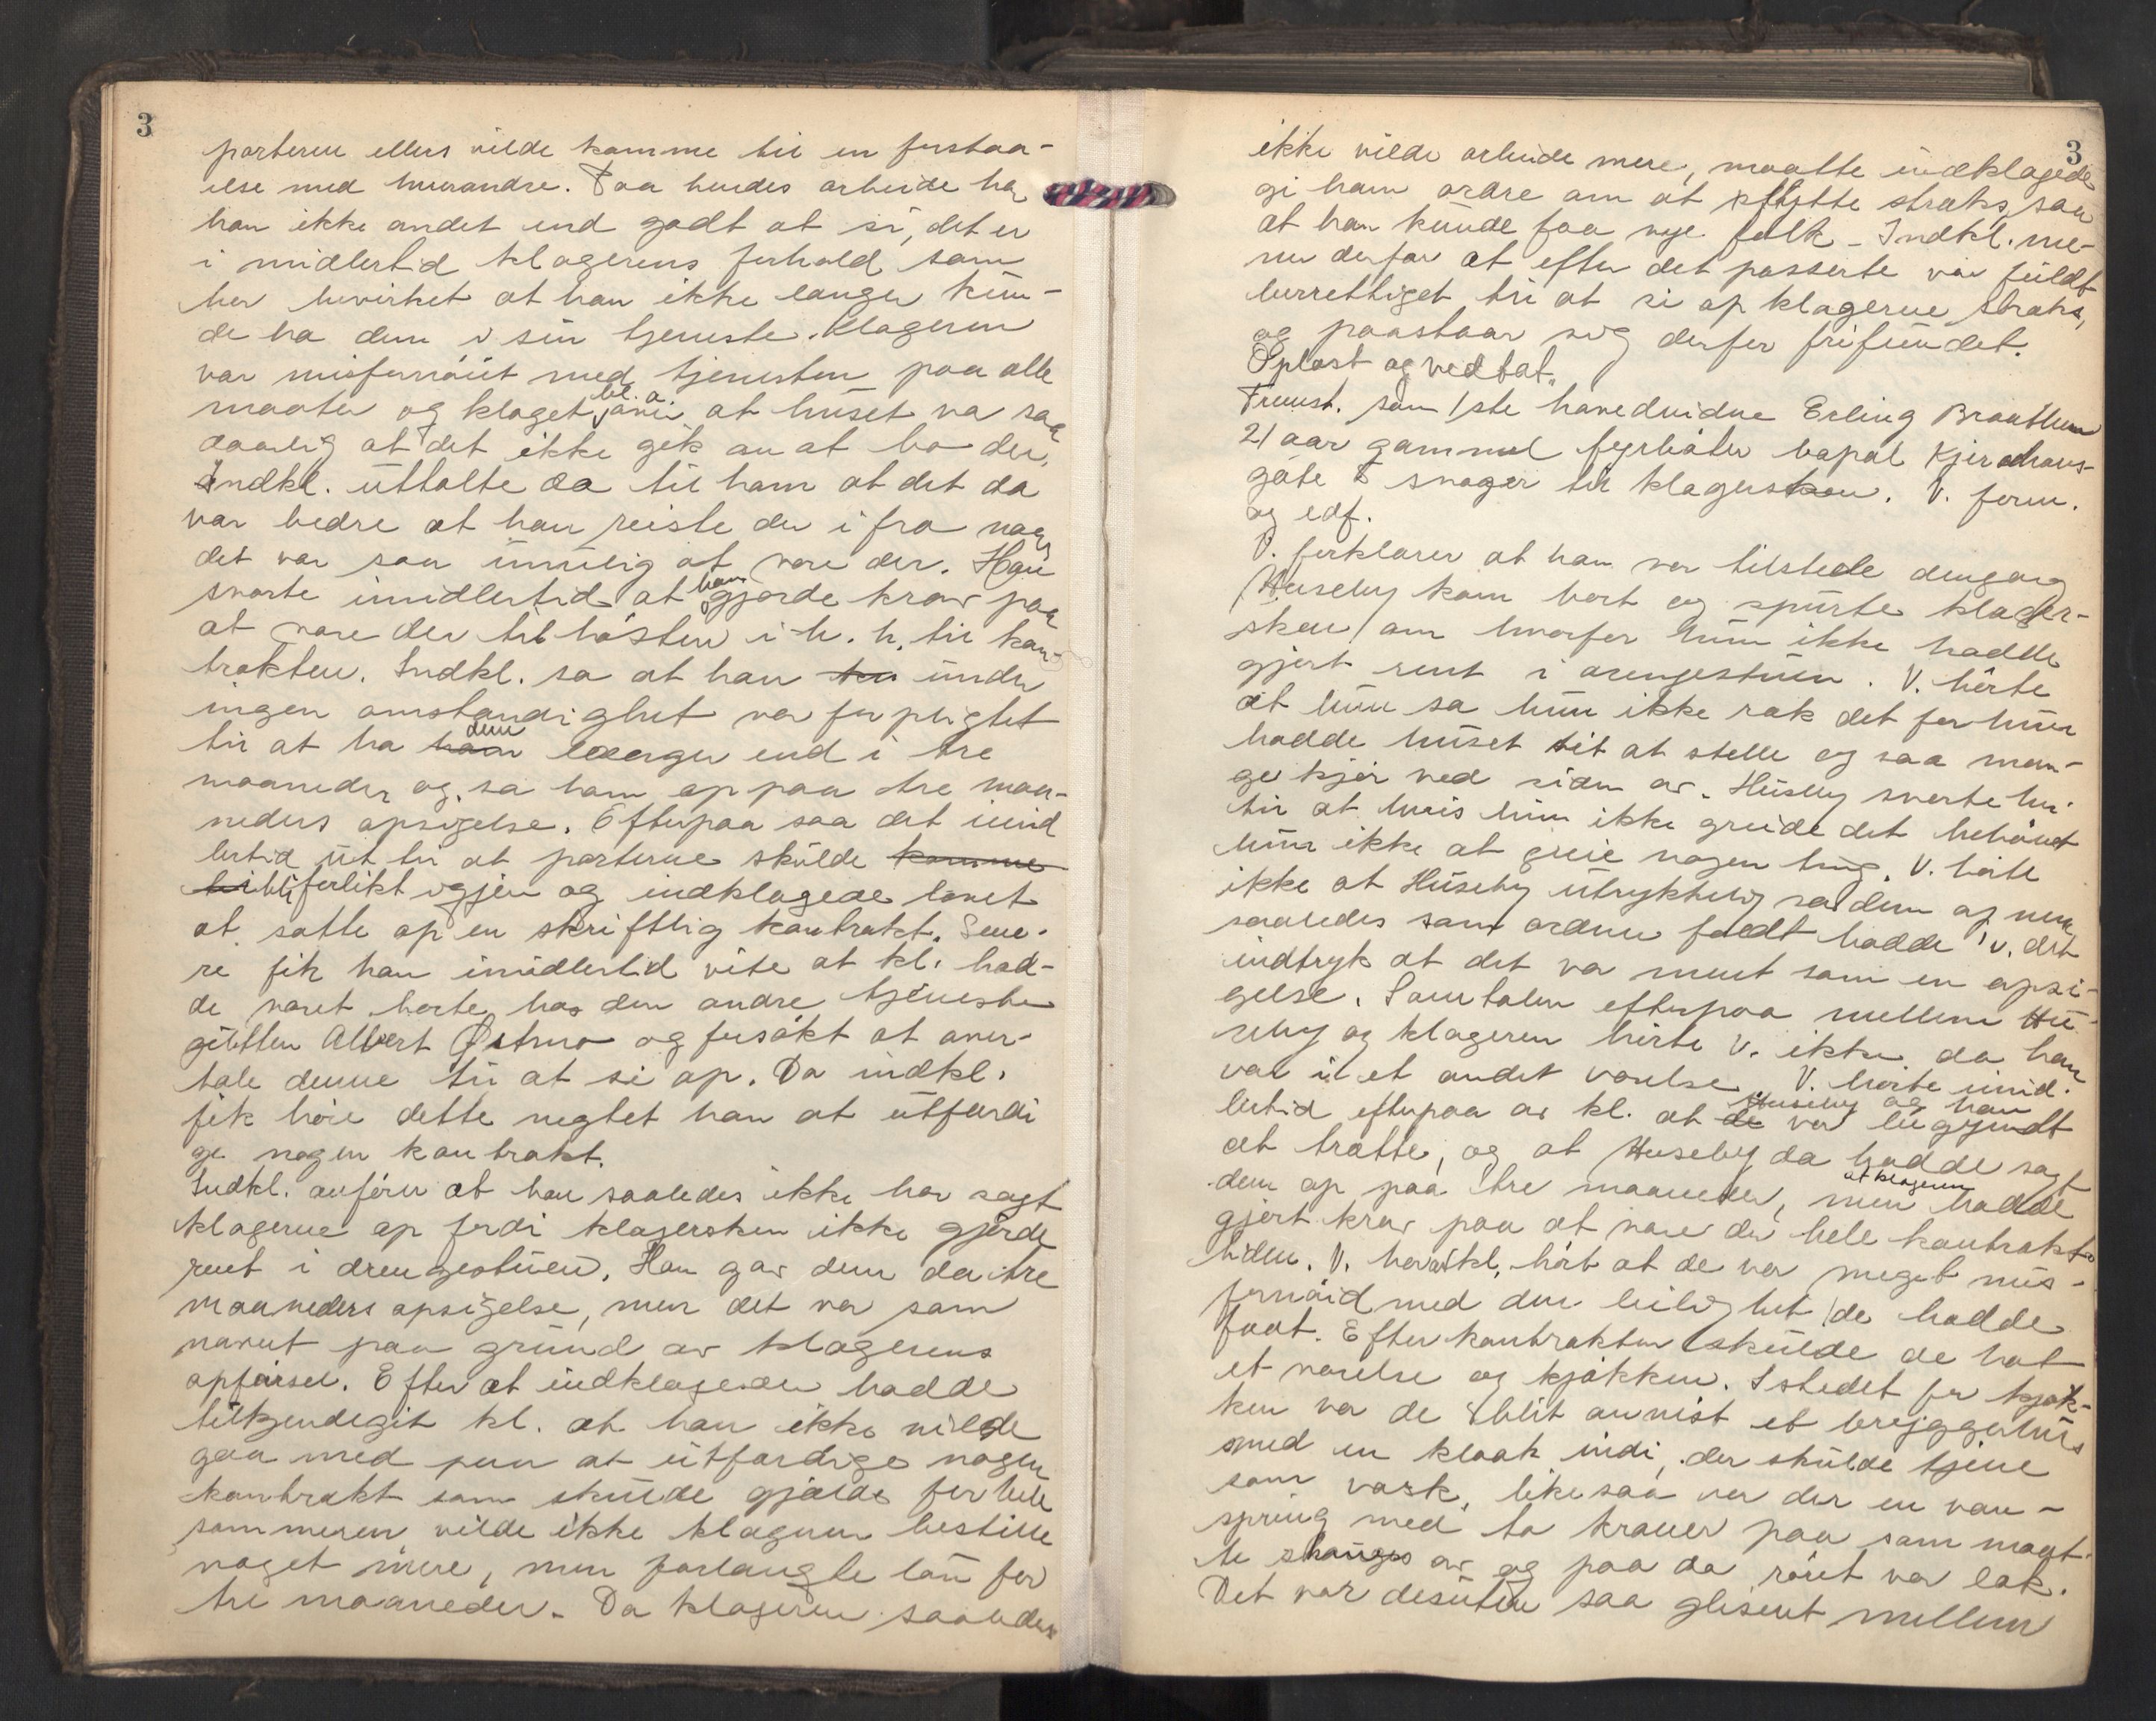 3
parterne ellers vilde komme til en forstaa-
else med hverandre. Paa hendes arbeide har
han ikke andet end godt at si, det er
i midlertid klagerens forhold, som
her bevirket at han ikke længer kun-
de ha dem i sin tjeneste. Klageren
var misfornöiet med tjenesten paa alle
maater og klaget bl. a. över at huset va saa
daarlig at det ikke gik an at bo der,
Indkl. uttalte da til ham at det da
var bedre at han reiste der ifra naar
det var saa umulig at være der. Han
svarte imidlertid at han gjorde krav paa
at være der til hösten i h. h. til kon-
trakten. Indkl. sa at han under
ingen omstændighet var forpligtet
til at ha dem længer end i tre
maaneder og sa ham op paa tre maa-
neders opsigelse. Efterpaa saa det imid
lertid ut til at parterne skulde komme
bli forlikt igjen og indklagede lovet
at sætte op en skriftlig kontrakt. Sene-
re fik han imidlertid vite at kl. had-
de været borte hos den andre tjeneste
gutten Albert Østmo og forsökt at over-
tale denne til at si op. Da indkl.
fik höre dette negtet han at utfærdi
ge nogen kontrakt.
Indkl. anförer at han saaledes ikke har sagt
klagerne op fordi klagersken ikke gjorde
rent i drengestuen. Han gav dem da tre
maaneders opsigelse, men det var som
nævnt paa grund av klagerens
opförsel. Efter at indklageden hadde
tilkjendegit kl. at han ikke vilde
gaa med paa at utfærdige nogen
kontrakt som skulde gjælde for hele
sommeren vilde ikke klageren bestille
noget mere, men forlangte lön for
tre maaneder. Da klageren saaledes
3
ikke vilde arbeide mere, maatte indklagede
gi ham ordre om at flytte straks, saa
at han kunde faa nye folk. Indkl. me-
ner derfor at efter det passerte var fuldt
berettiget til at si op klagerne straks,
og paastaar sig derfor frifundet.
Oplæst og vedtat.
Fremst. som 1ste hovedvidne Erling Braathen
21 aar gammel fyrböter bopæl Kjerschous-
gate 8 svoger til klagersken. V. form.
og edf.
V. forklarer at han var tilstede dengang
Huseby kom bort og spurte klager-
sken om hvorfor hun ikke hadde
gjort rent i drengestuen. V. hörte
at hun sa hun ikke rak det for hun
hadde huset sit at stelle og saa man-
ge kjör ved siden av. Huseby svarte her-
til at hvis hun ikke greide det behövet
hun ikke at greie nogen ting. V. hörte
ikke at Huseby utrykkelig sa dem op men
saaledes som ordene faldt hadde v. det
indtryk at det va ment som en opsi-
gelse. Samtalen efterpaa mellem Hu-
seby og klageren hörte v. ikke da han
var i et andet værelse. V. hörte imid-
lertid efterpaa av kl. at de Huseby og han var begyndt
at trætte, og at Huseby da hadde sagt
dem op paa tre maaneder, men at klageren hadde
gjort krav paa at være der hele kontrakts
tiden. V. har av kl. hört at de var meget mis-
fornöid med den leilighet de hadde
faat. Efter kontrakten skulde de hat
et værelse og kjökken. Istedet for kjök-
ken va de blit anvist et bryggerhus
med en kloak indi, der skulde tjene
som vask, likesaa var der en van-
spring med to kraner paa som maat-
te stænges av og paa da röret var læk.
Det var desuten saa glisent mellem